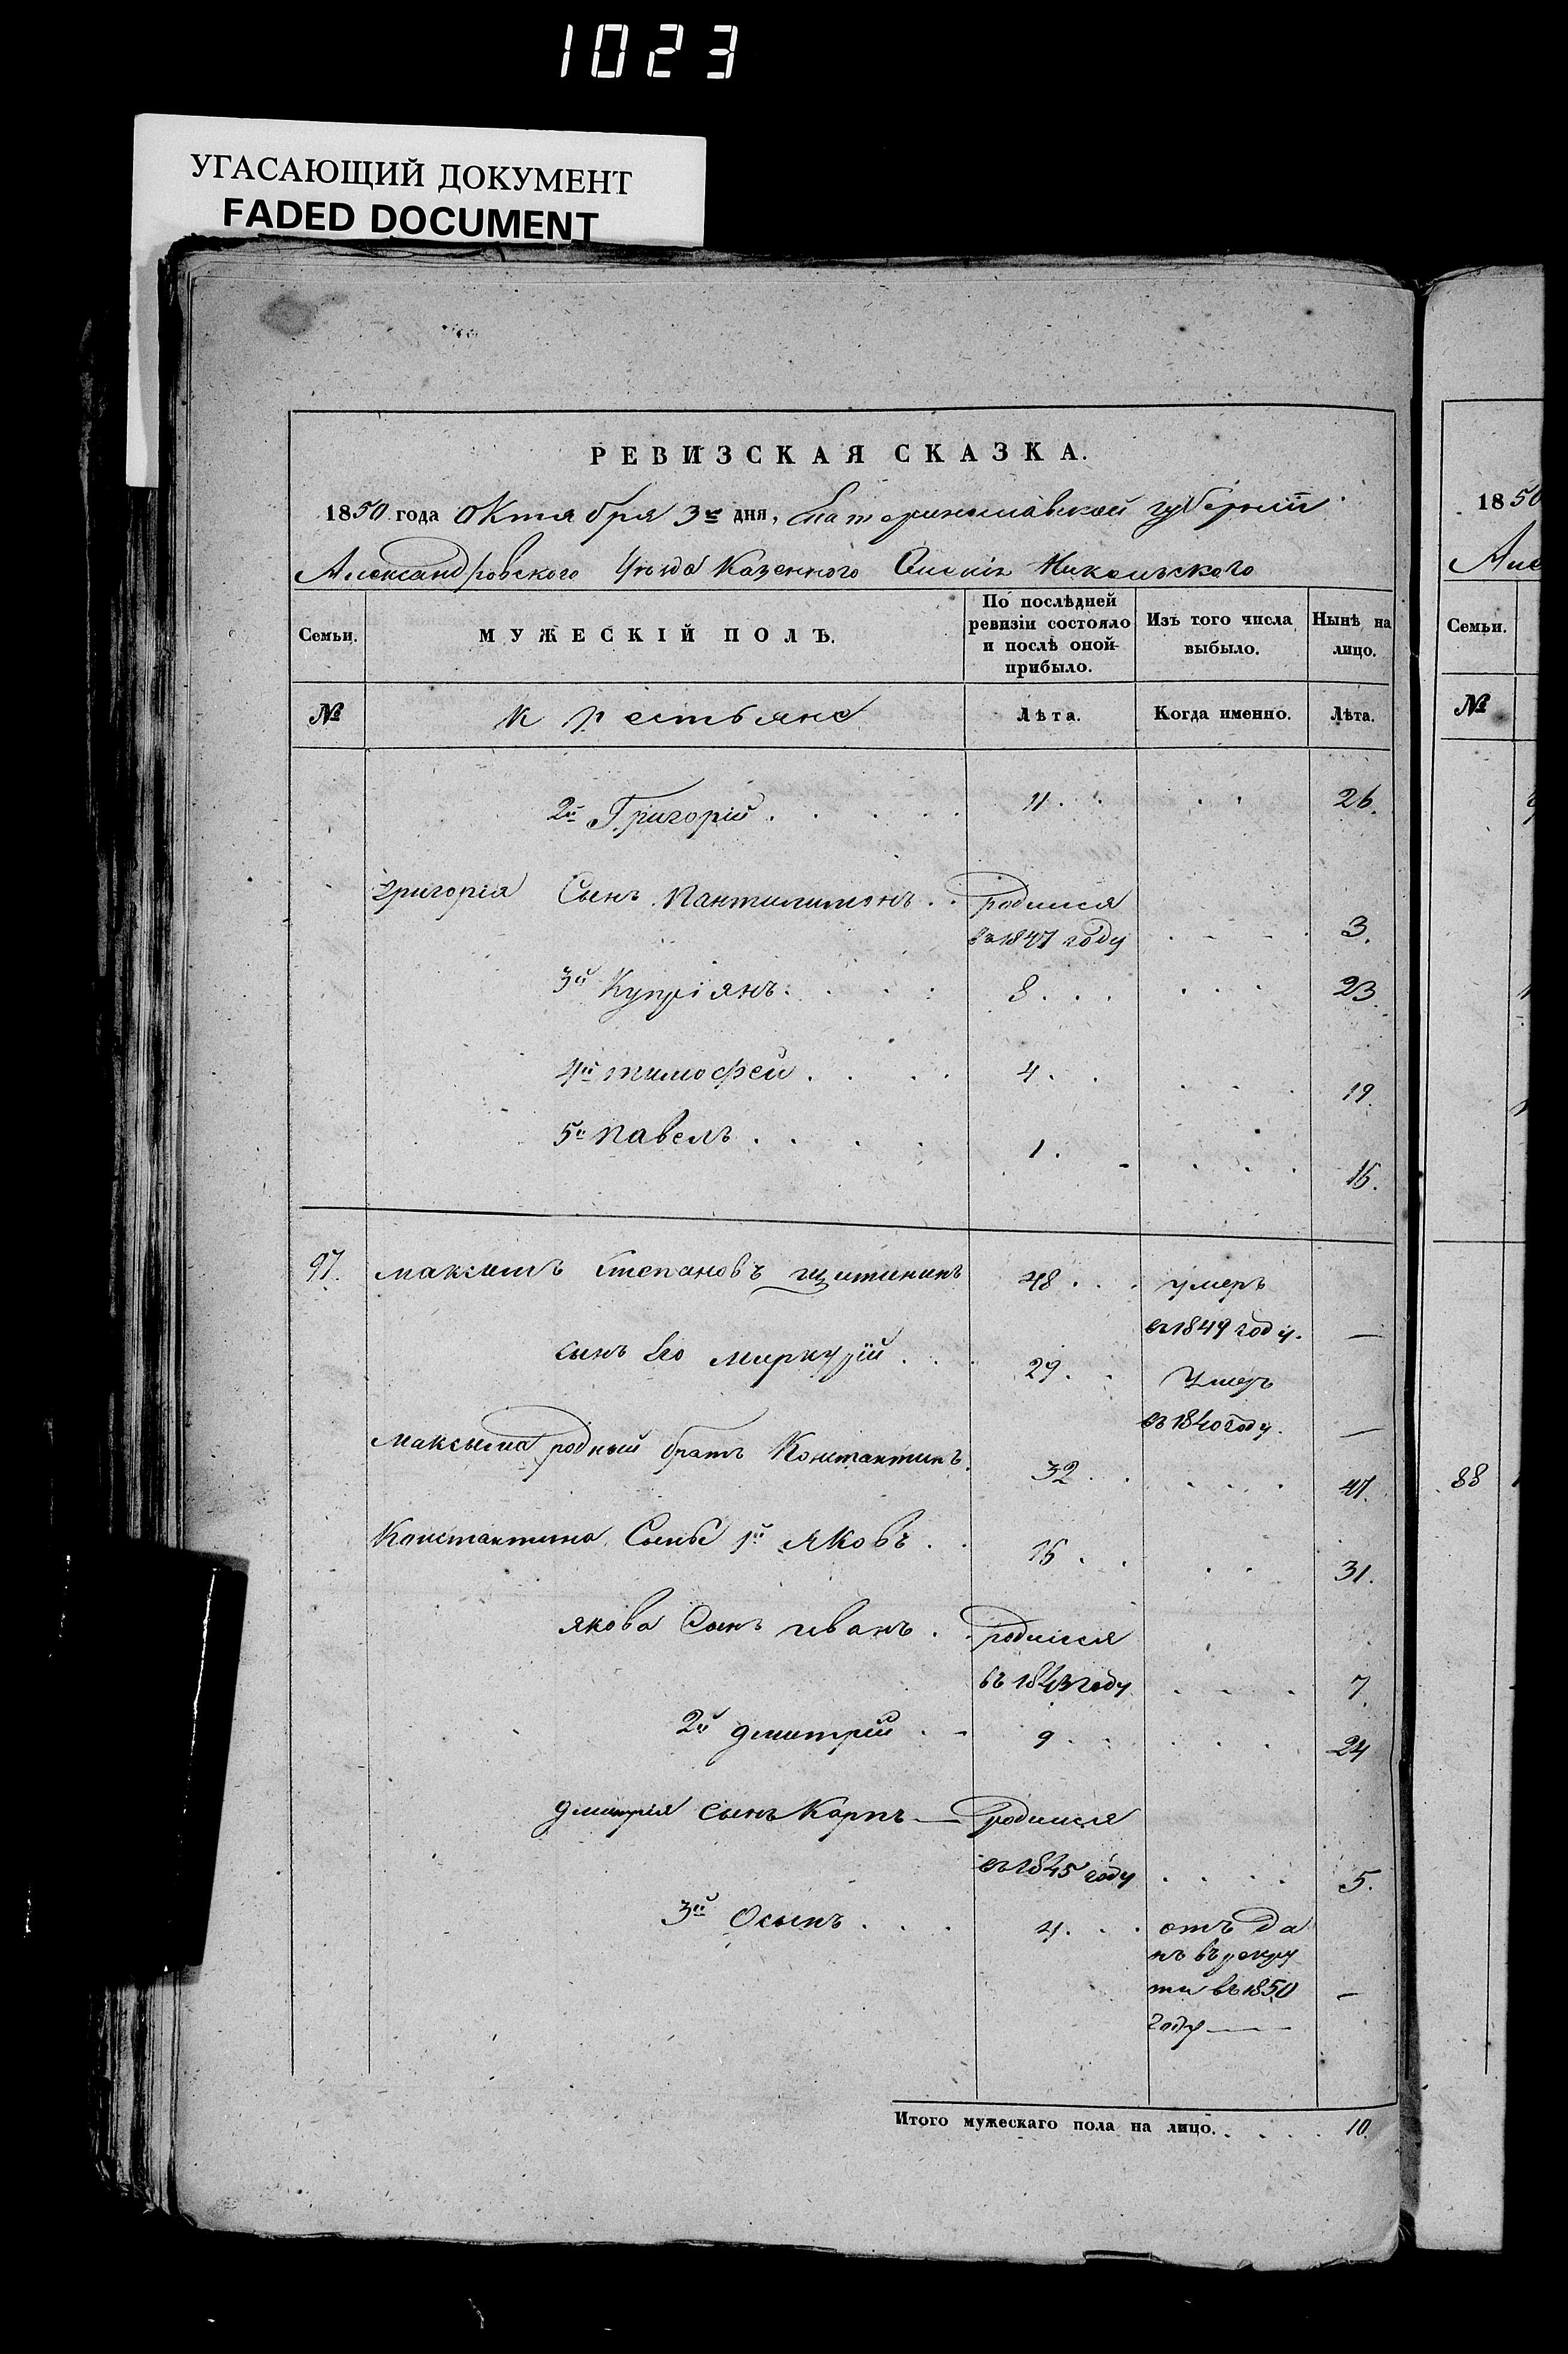 1023
УГАСАЮЩИЙ ДОКУМЕНТ
FADED DOCUMENT
РЕВИЗСКАЯ СКАЗКА.
1850 года Октября 3го дня, Екатеринославской губерніи
Александровского Уѣзда Казенного Никольского
Семьи. МУЖЕСКІЙ ПОЛЪ. По послѣдней ревизіи состояло и послѣ оной прибыло. Изъ того числа выбыло. Нынѣ на лицо.
№ Крестьяне Лѣта. Когда именно. Лѣта.
2й Григорій 11 26.
Григорія Сынъ Пантилимонъ родился
въ 1847 году 3.
3й Купріянъ 8 23
4й тимофей 4 19.
5й павелъ 1 16.
97. максимъ Степановъ щитининъ 48 умеръ
въ 1849 году. —
сынъ Его Миркурій 29 Умеръ
въ 1840 году. —
Максыма родный братъ Константинъ 32 47.
Константина Сынъ 1й Яковъ 16 31.
якова Сынъ иванъ родился
въ 1843 году 7.
2й дмитрій 9 24
дмитрія сынъ Карпъ — родился
въ 1845 году 5.
3й Осыпъ 4 отъ да
нъ въ рекру
ти въ 1850 —
году —
Итого мужескаго пола на лицо. 10.
1850
Семьи.
№
88